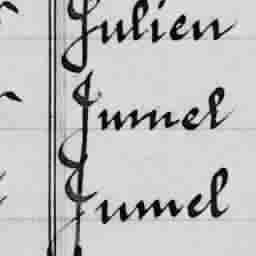 Julien
Jumel
Jumel